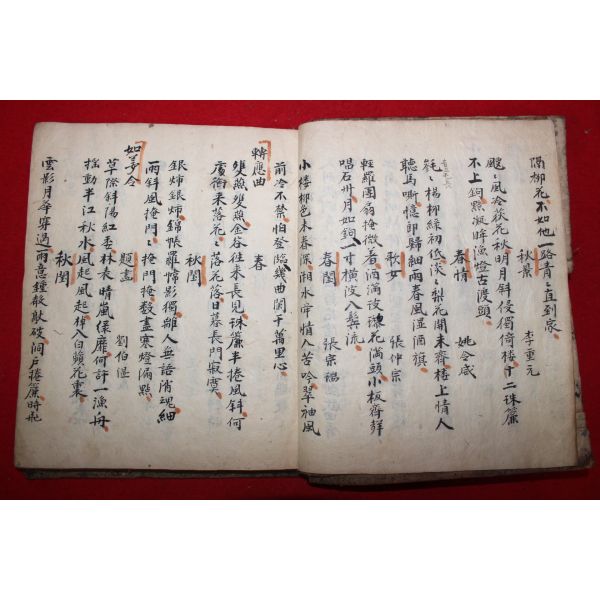 隔柳花不如他一路青〻直到家
秋景 李重元
颼〻風冷荻花秋明月斜侵獨倚樓十二珠簾
不上鉤黯凝眸漁燈古渡頭
春情 姚令咸
毿〻楊柳綠初低淡〻梨花開未齊樓上情人
聽馬嘶憶郎歸細雨春風濕酒旗
歌女 張仲宗
輕羅團扇掩微羞酒滿玻瓈花滿頭小板齊聲
唱石州月如鉤一寸橫波入鬢流
春閨 張宗瑞
小樓柳色未春深湘水牽情入苦吟翠袖風
前冷不禁怕登臨幾曲闌干萬里心
轉應曲
春
雙燕雙燕金谷往來長見珠簾半捲風斜何
處銜來落花〻落花落日暮長門寂寞
秋閨
銀燭銀燭錦帳羅幃影獨離人無語消魂細
雨斜風掩門〻掩門掩數盡寒燈漏點
如夢令
題畫 劉伯溫
草際斜陽紅委林表晴嵐綠靡何許一漁舟
搖動半江秋水風起風起棹入白蘋花裏
秋閨
雲影月華穿過雨意鍾殘獻破洞戶捲簾時飛